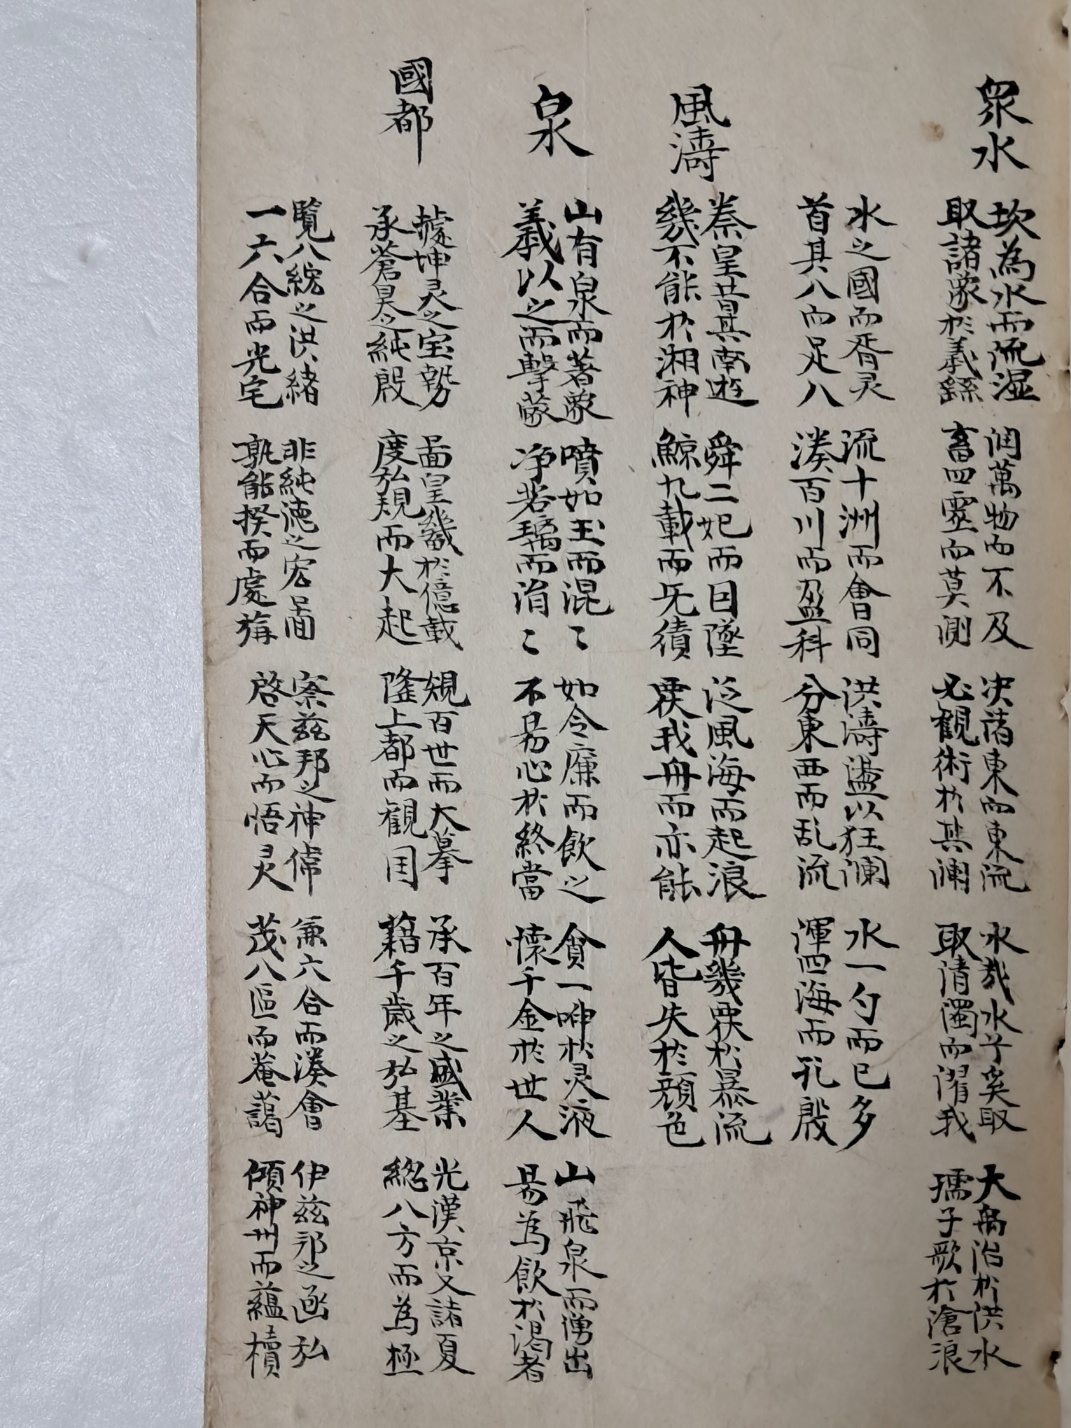 衆水
坎為水而流湿
取諸蒙於義繇
润萬物而不及
畜四靈而莫測
决蕩東而東流
必觀術於其瀾
水哉水乎奚取
取清濁而濯我
大禹治於洪水
孺子歌於滄浪
水之國而胥灵
首其八而足八
流十洲而會同
湊百川而盈科
洪濤盪以狂瀾
分東西而乱流
水一勺而已多
渾四海而孔殷
風濤
秦皇昔其南逰
幾不能於湘神
舜二妃而目墜
鯨九載而旡績
泛風海而起浪
覆我舟而亦能
舟幾覆於暴流
人皆失於顔色
泉
山有泉而著蒙
義以之而擊蒙
噴如玉而混〻
净若璃而涓〻
如令廉而飲之
不易心於終當
貪一呷於灵液
懐千金於世人
山飛泉而僧出
易為飲於渴者
國都
據坤灵之宝勢
承蒼昊之純殷
啚皇畿於億載
度弘規而大起
規百世而大摹
隆上都而觀囯
承百年之盛業
藉千歲之弘基
光漢京又諸夏
総八方而為極
覧八紘之洪緒
一六合而光宅
非純徳之宏啚
孰能揆而處旃
寮兹邦之神偉
啓天心而悟灵
兼六合而湊會
茂八區而菴藹
伊兹邦之凾弘
傾神州而藴櫝